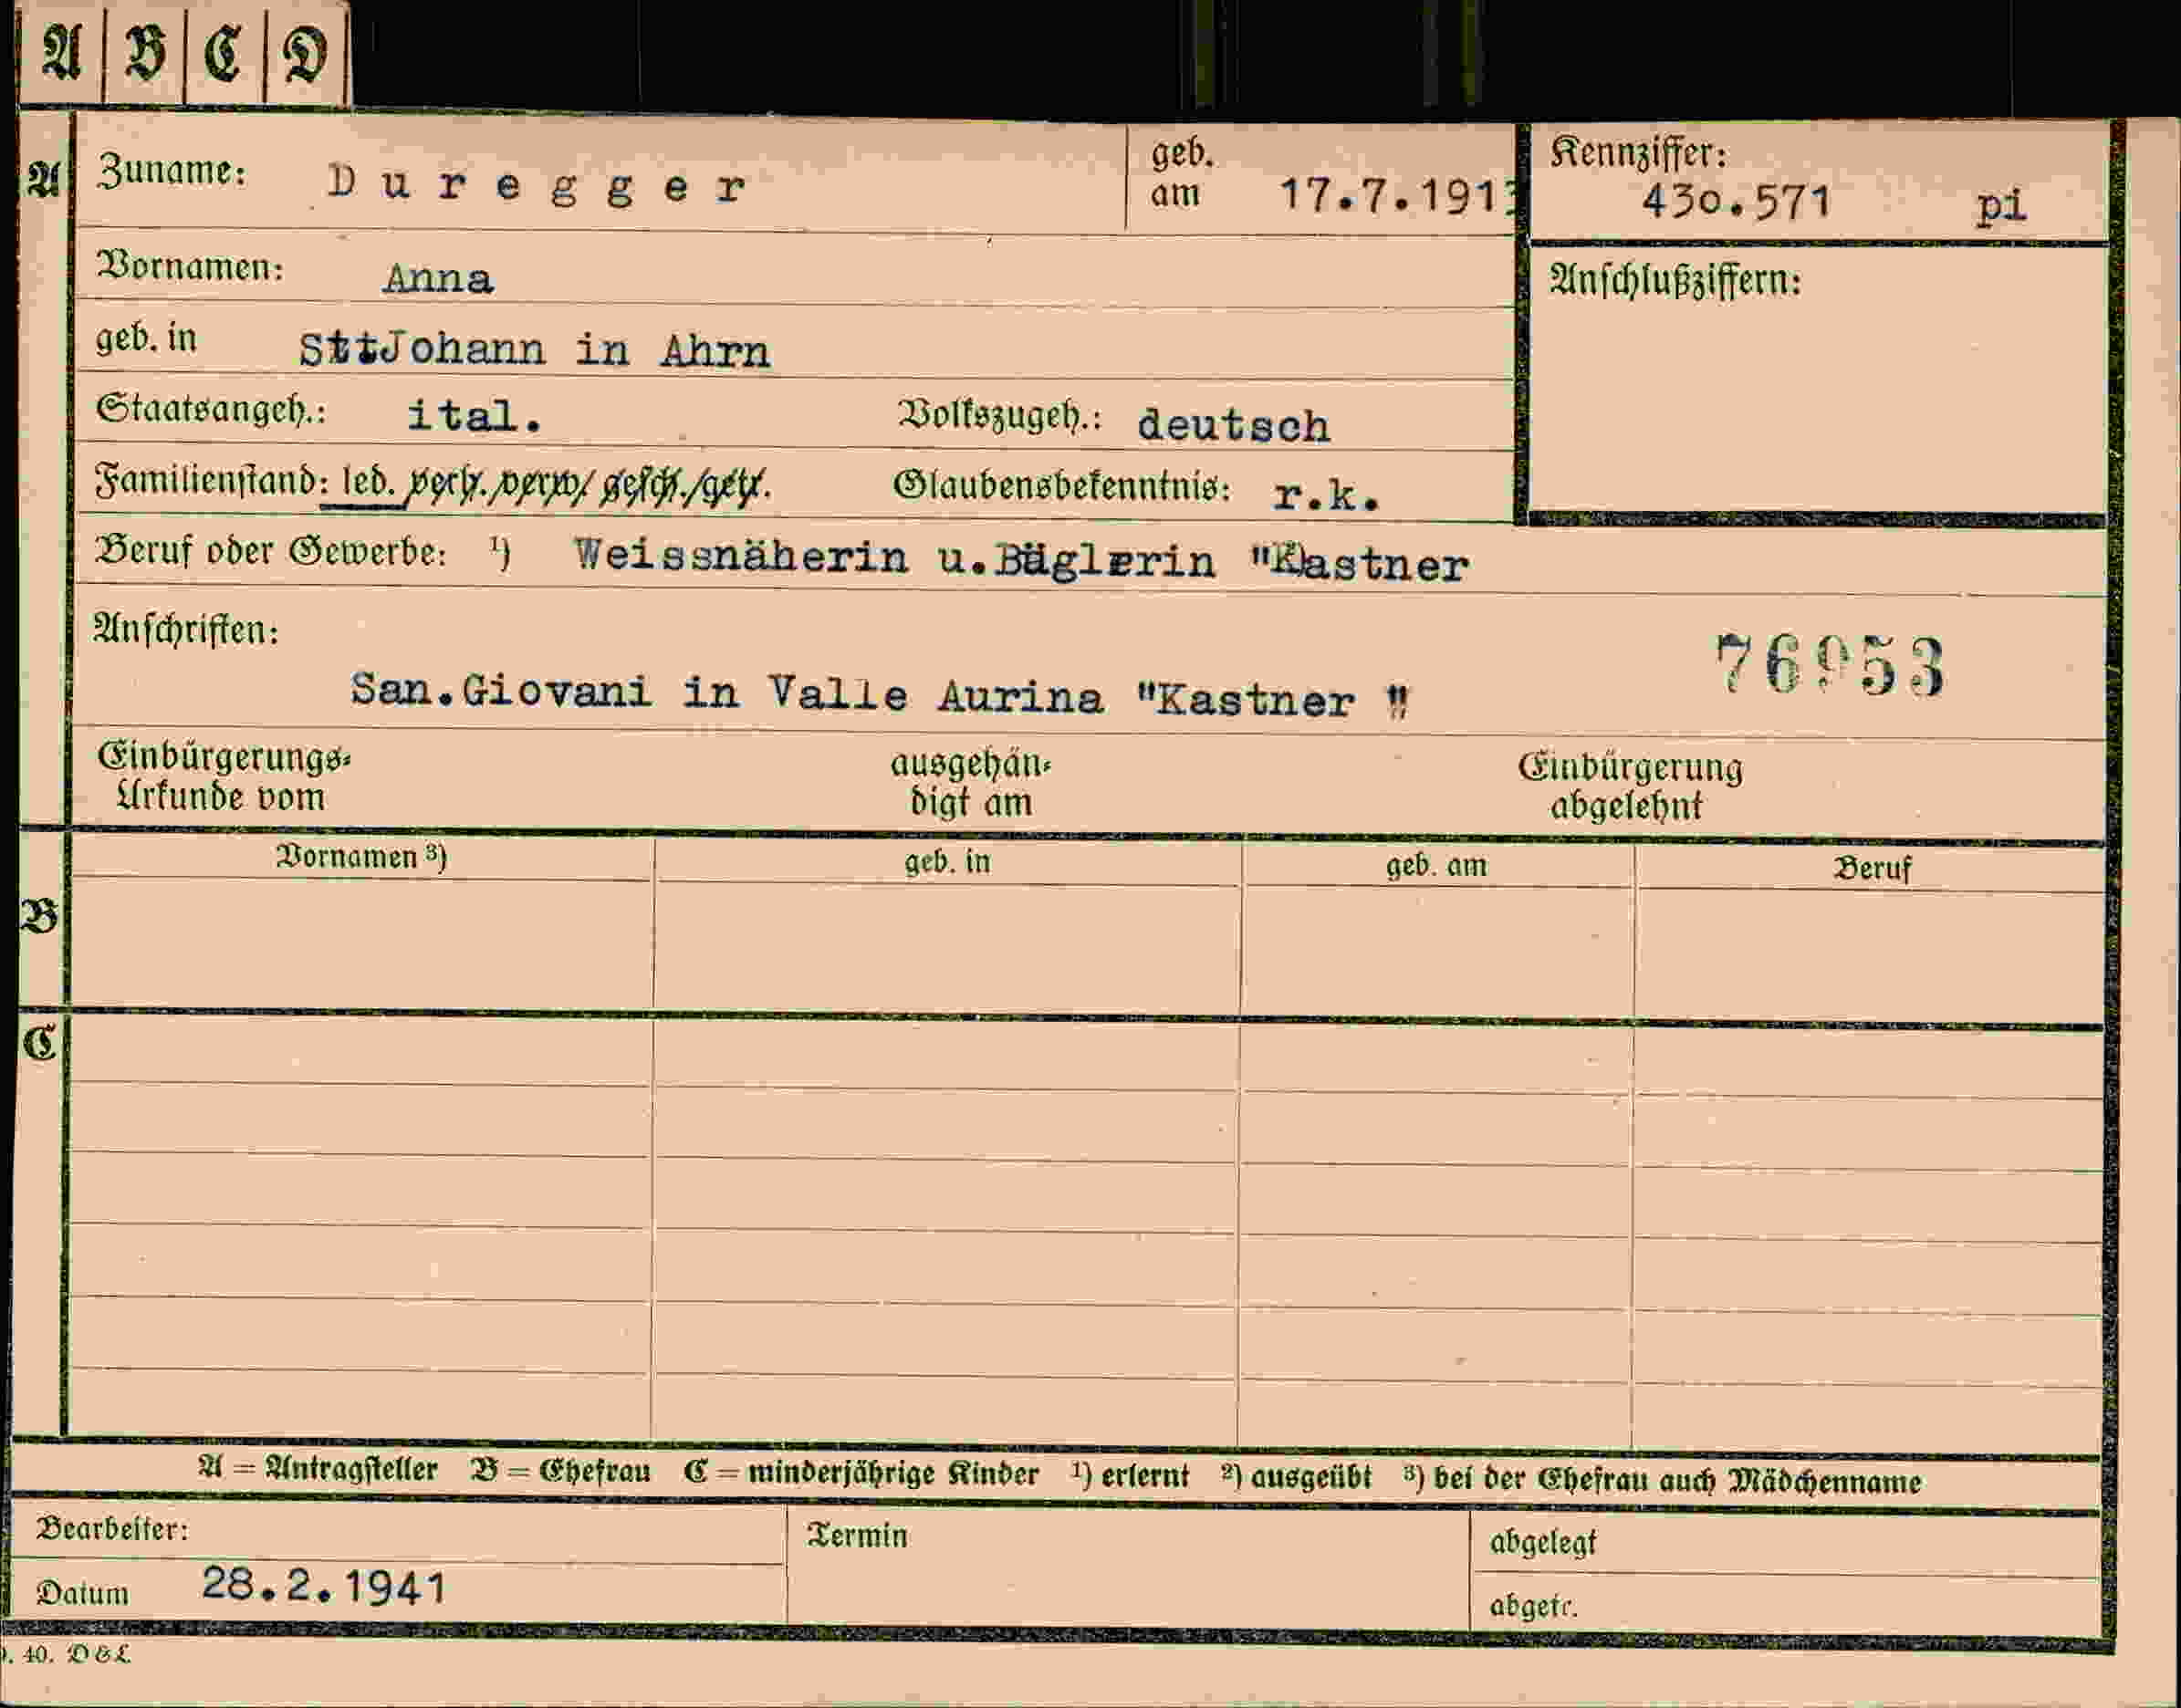 A B C D
A
Zuname: Duregger
geb. am 17.7.1913
Kennziffer: 430.571 pi
Vornamen: Anna
Anschlußziffern:
geb. in SttJohann in Ahrn
Staatsangeh.: ital. Volkszugeh.: deutsch
Familienstand: led. verh./verw/ gesch./getr. Glaubensbekenntnis: r.k.
Beruf oder Gewerbe: ¹) Weissnäherin u.Büglerin "Kastner
Anschriften:
San.Giovani in Valle Aurina "Kastner "
Einbürgerungs-
Urkunde vom
ausgehän-
digt am
Einbürgerung
abgelehnt
Vornamen ³) geb. in geb. am Beruf
B
C
A = Antragsteller B = Ehefrau C = minderjährige Kinder ¹) erlernt ²) ausgeübt ³) bei der Ehefrau auch Mädchenname
Bearbeiter:
Termin
abgelegt
Datum 28.2.1941
abgetr.
40. D&L